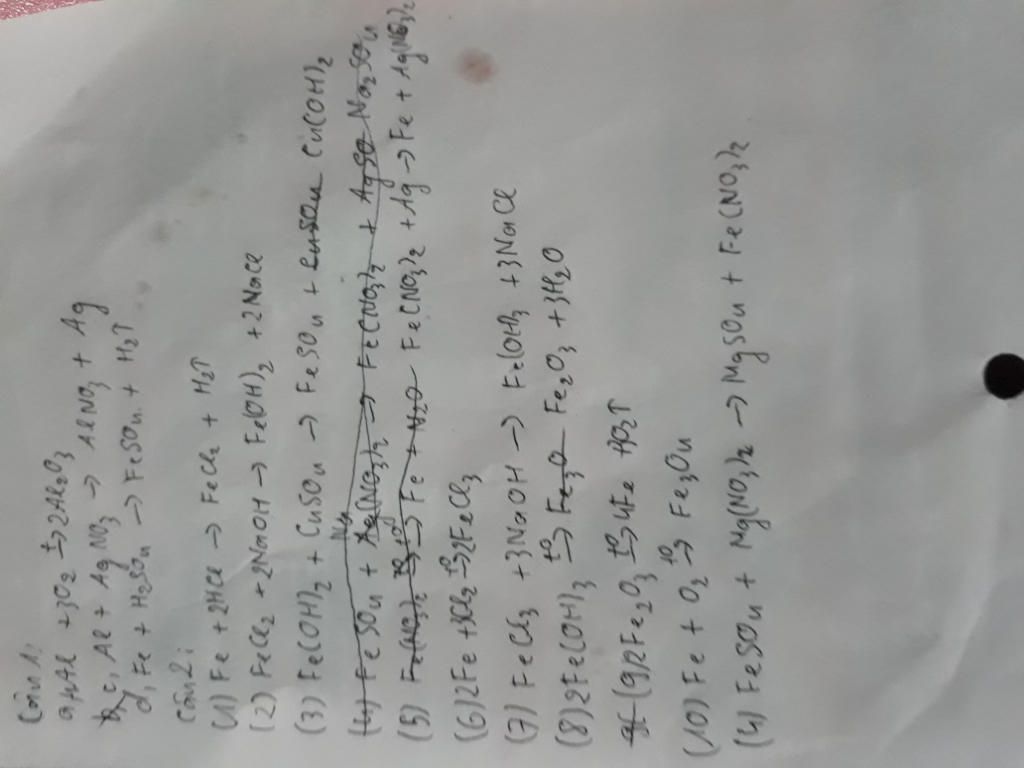 Câu 1:
a, 4Al + 3O2 t°→ 2Al2O3
c, Al + AgNO3 → AlNO3 + Ag
d, Fe + H2SO4 → FeSO4 + H2↑
Câu 2:
(1) Fe + 2HCl → FeCl2 + H2↑
(2) FeCl2 + 2NaOH → Fe(OH)2 + 2NaCl
(3) Fe(OH)2 + CuSO4 → FeSO4 + Cu(OH)2
(4) FeSO4 + (NO3)2 → Fe(NO3)2 + Na2SO4
(5) Fe(NO3)2 + Ag → Fe + Ag(NO3)2
(6) 2Fe + 3Cl2 t°→ 2FeCl3
(7) FeCl3 + 3NaOH → Fe(OH)3 + 3NaCl
(8) 2Fe(OH)3 t°→ Fe2O3 + 3H2O
(9) 2Fe2O3 t°→ 4Fe + O2↑
(10) Fe + O2 t°→ Fe3O4
(4) FeSO4 + Mg(NO3)2 → MgSO4 + Fe(NO3)2